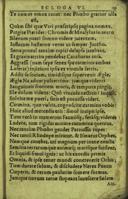 ECLOGA VI.
Te nemus omne canet: nec Phoebo gratior ulla
Quàm sibi quae Vari praescripsit pagina nomen.
Pergite Pierides: Chromis & Mnasylus in antro
Silenum pueri somno videre iacentem,
Inflatum hesterno venas ut semper Iaccho.
Serta procul tantum capiti delapsa iacebant,
Et gravis attrita pendebat Cantharus ansa.
Aggressi (nam saepe senex spe carminis ambo
Luserat) iniiciunt ipsis ex vincula sertis.
Addit se sociam, timidisque supervenit Aegle,
Aegle Naiadum pulcherrima: iamque videnti
Sanguineis frontem moris, & tempora pingit.
Ille dolum ridens, Quo vincula nectitis? inquit.
Solvite me pueri, satis est potuisse videri.
Carmina, quae vultis, cognoscite: carmina vobis:
Huic aliud mercedis erit: simul incipit ipse.
Tum vero in numerum Faunosque feras videres
Ludere, tum rigidas motare cacumina quercus.
Nec tantum Phoebo gaudet Parnasia rupes:
Nec tantum Rhodope miratur & Ismarus Orphea.
Namque canebat, uti magnum per inane coacta
Semina terrarumque animaeque marisque fuissent,
Et liquidi simul ignis: ut his exordia primis
Omnia, & ipse tener mundi concreverit orbis.
Tum durare solum, & discludere Nerea ponto
Coeperit, & rerum paulatim sumere formas.
Iamque novum terrae stupeant lucescere solem,